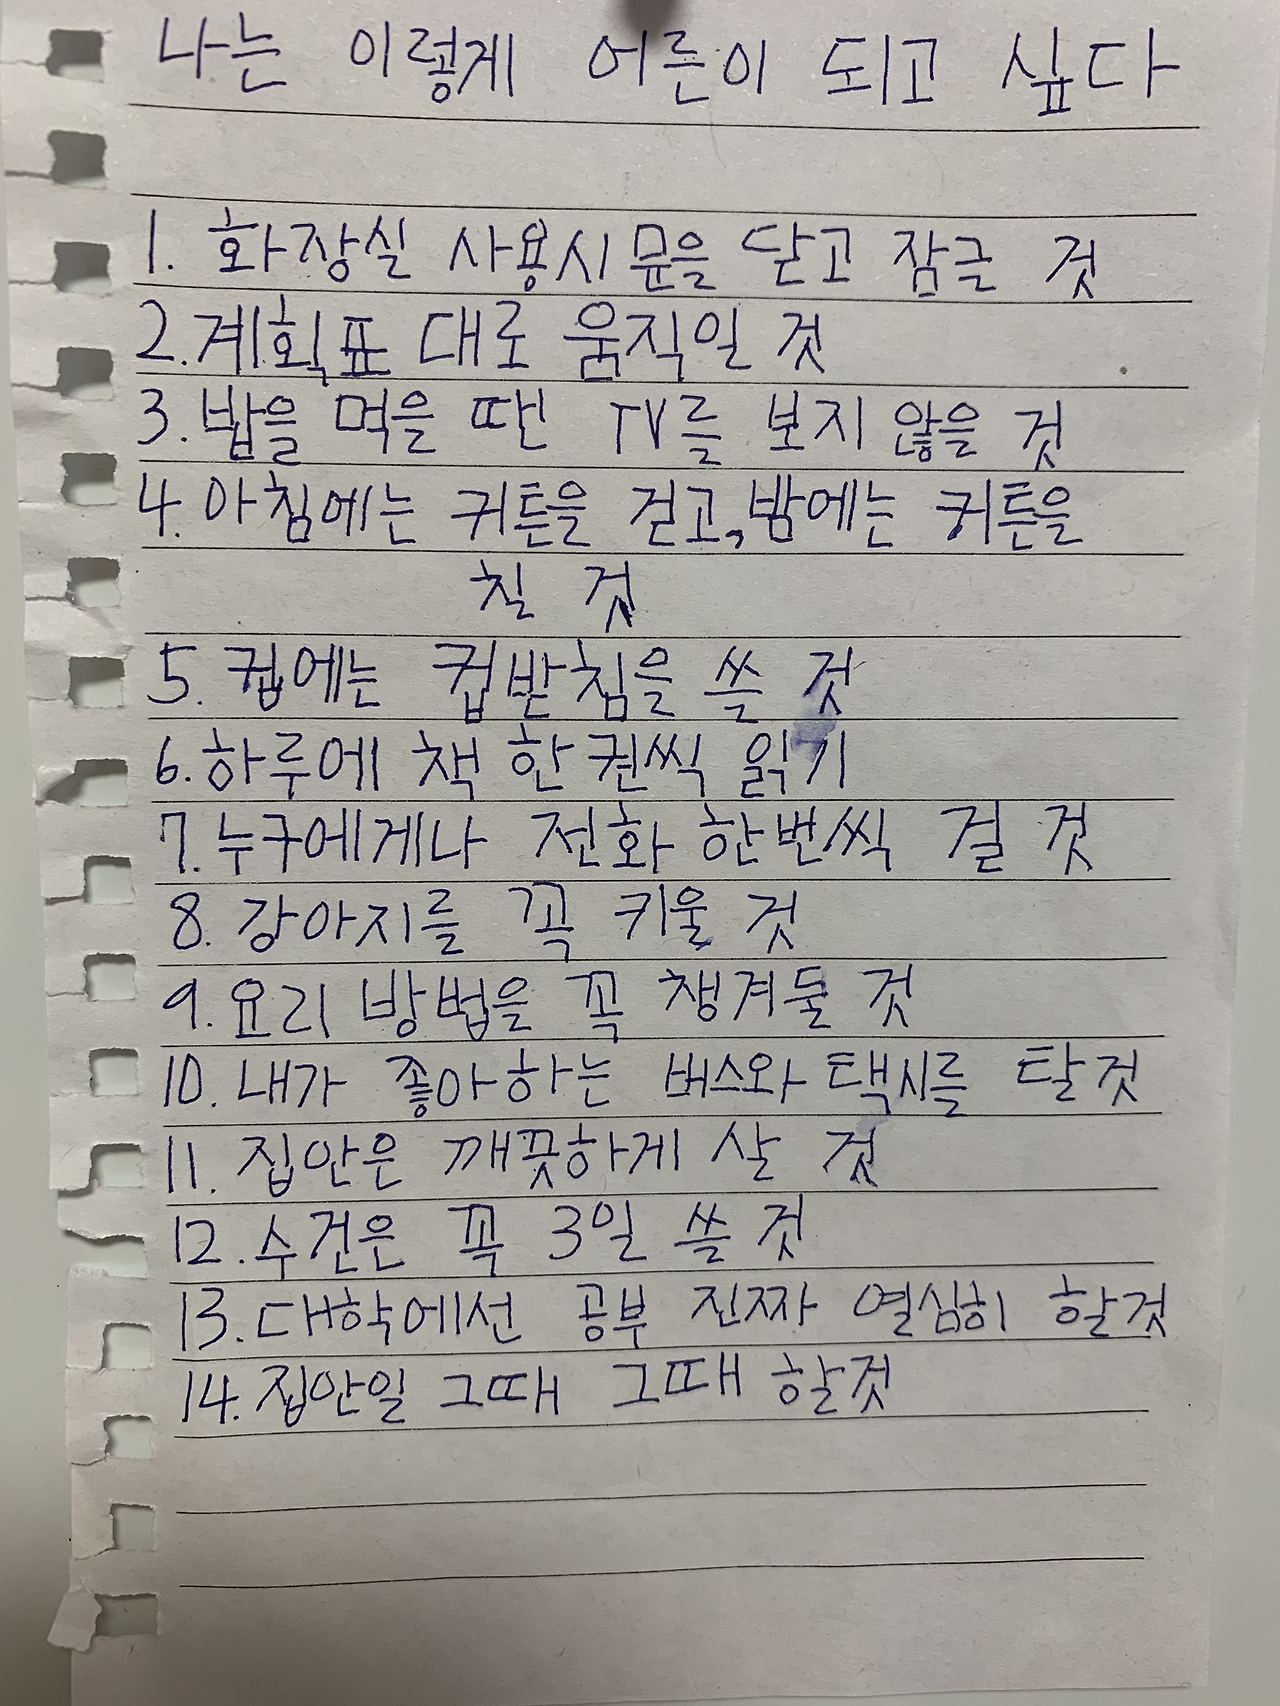 나는 이렇게 어른이 되고 싶다
1. 화장실 사용시 문을 닫고 잠글 것
2. 계획표 대로 움직일 것
3. 밥을 먹을 땐 TV를 보지 않을 것
4. 아침에는 커튼을 걷고, 밤에는 커튼을
칠 것
5. 컵에는 컵받침을 쓸 것
6. 하루에 책 한권씩 읽기
7. 누구에게나 전화 한번씩 걸 것
8. 강아지를 꼭 키울 것
9. 요리 방법을 꼭 챙겨둘 것
10. 내가 좋아하는 버스와 택시를 탈것
11. 집안은 깨끗하게 살 것
12. 수건은 꼭 3일 쓸 것
13. 대학에선 공부 진짜 열심히 할것
14. 집안일 그때 그때 할것